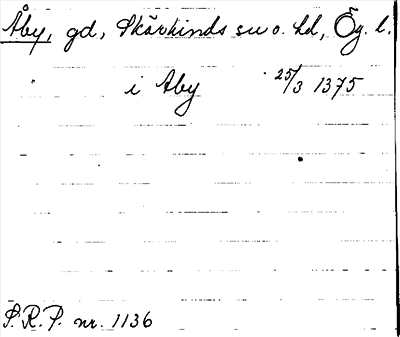 Åby, gd, Skärkinds sn o. hd, Ög. l.
i Aby 25/3 1375
S. R. P. nr. 1136